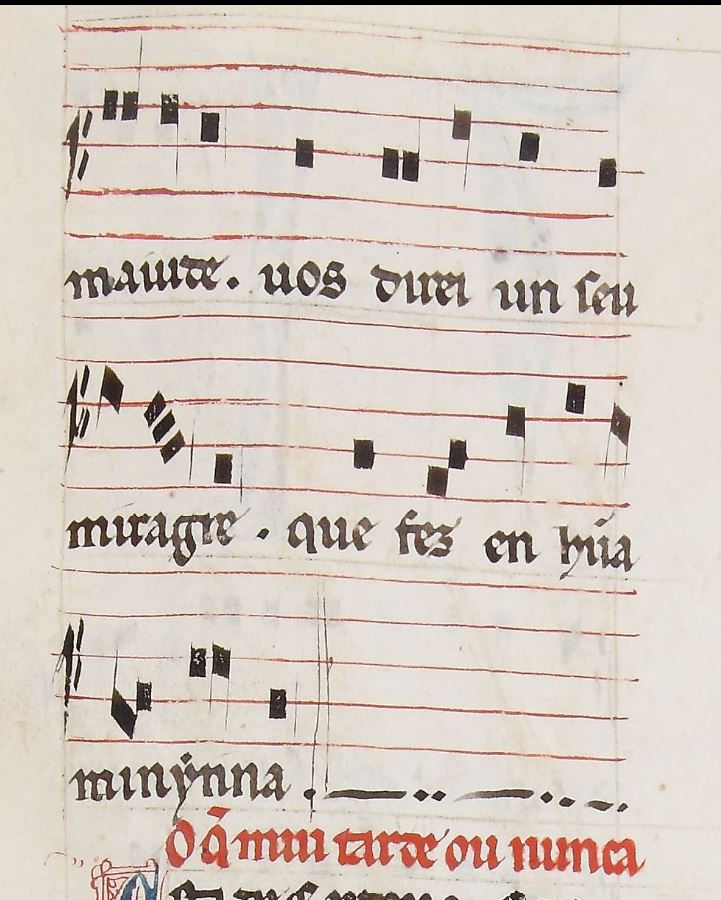 maiute. uos direi un seu
miragre. que fez en hũa
minỹnna.
O q̃ mui tarde ou nunca